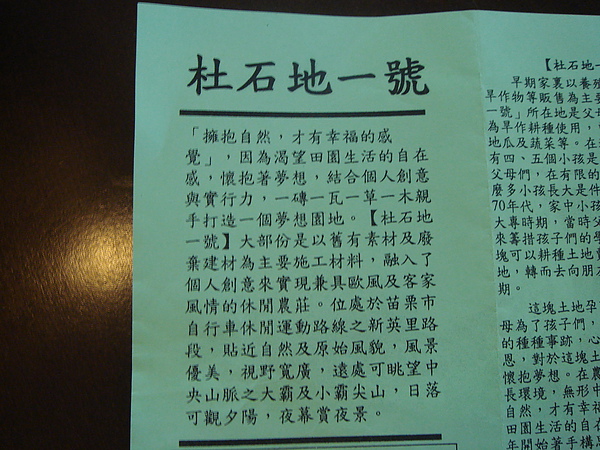 杜石地一號
「擁抱自然，才有幸福的感
覺」，因為渴望田園生活的自在
感，懷抱著夢想，結合個人創意
與實行力，一磚一瓦一草一木親
手打造一個夢想園地。【杜石地
一號】大部份是以舊有素材及廢
棄建材為主要施工材料，融入了
個人創意來實現兼具歐風及客家
風情的休閒農莊。位處於苗栗市
自行車休閒運動路線之新英里路
段，貼近自然及原始風貌，風景
優美，視野寬廣，遠處可眺望中
央山脈之大霸及小霸尖山，日落
可觀夕陽，夜幕賞夜景。
【杜石地一
早期家裏以養殖
旱作物等販售為主要
一號」所在地是父母
為旱作耕種使用，
地瓜及蔬菜等。在
有四、五個小孩是
父母們，在有限的
麼多小孩長大是件
70年代，家中小孩
大專時期，當時父
來籌措孩子們的學
塊可以耕種土地賣
地，轉而去向朋友
期。
這塊土地孕
母為了孩子們，
的種種事跡，心
恩，對於這塊土
懷抱夢想。在農
長環境，無形中
自然，才有幸福
田園生活的自在
年開始著手構思